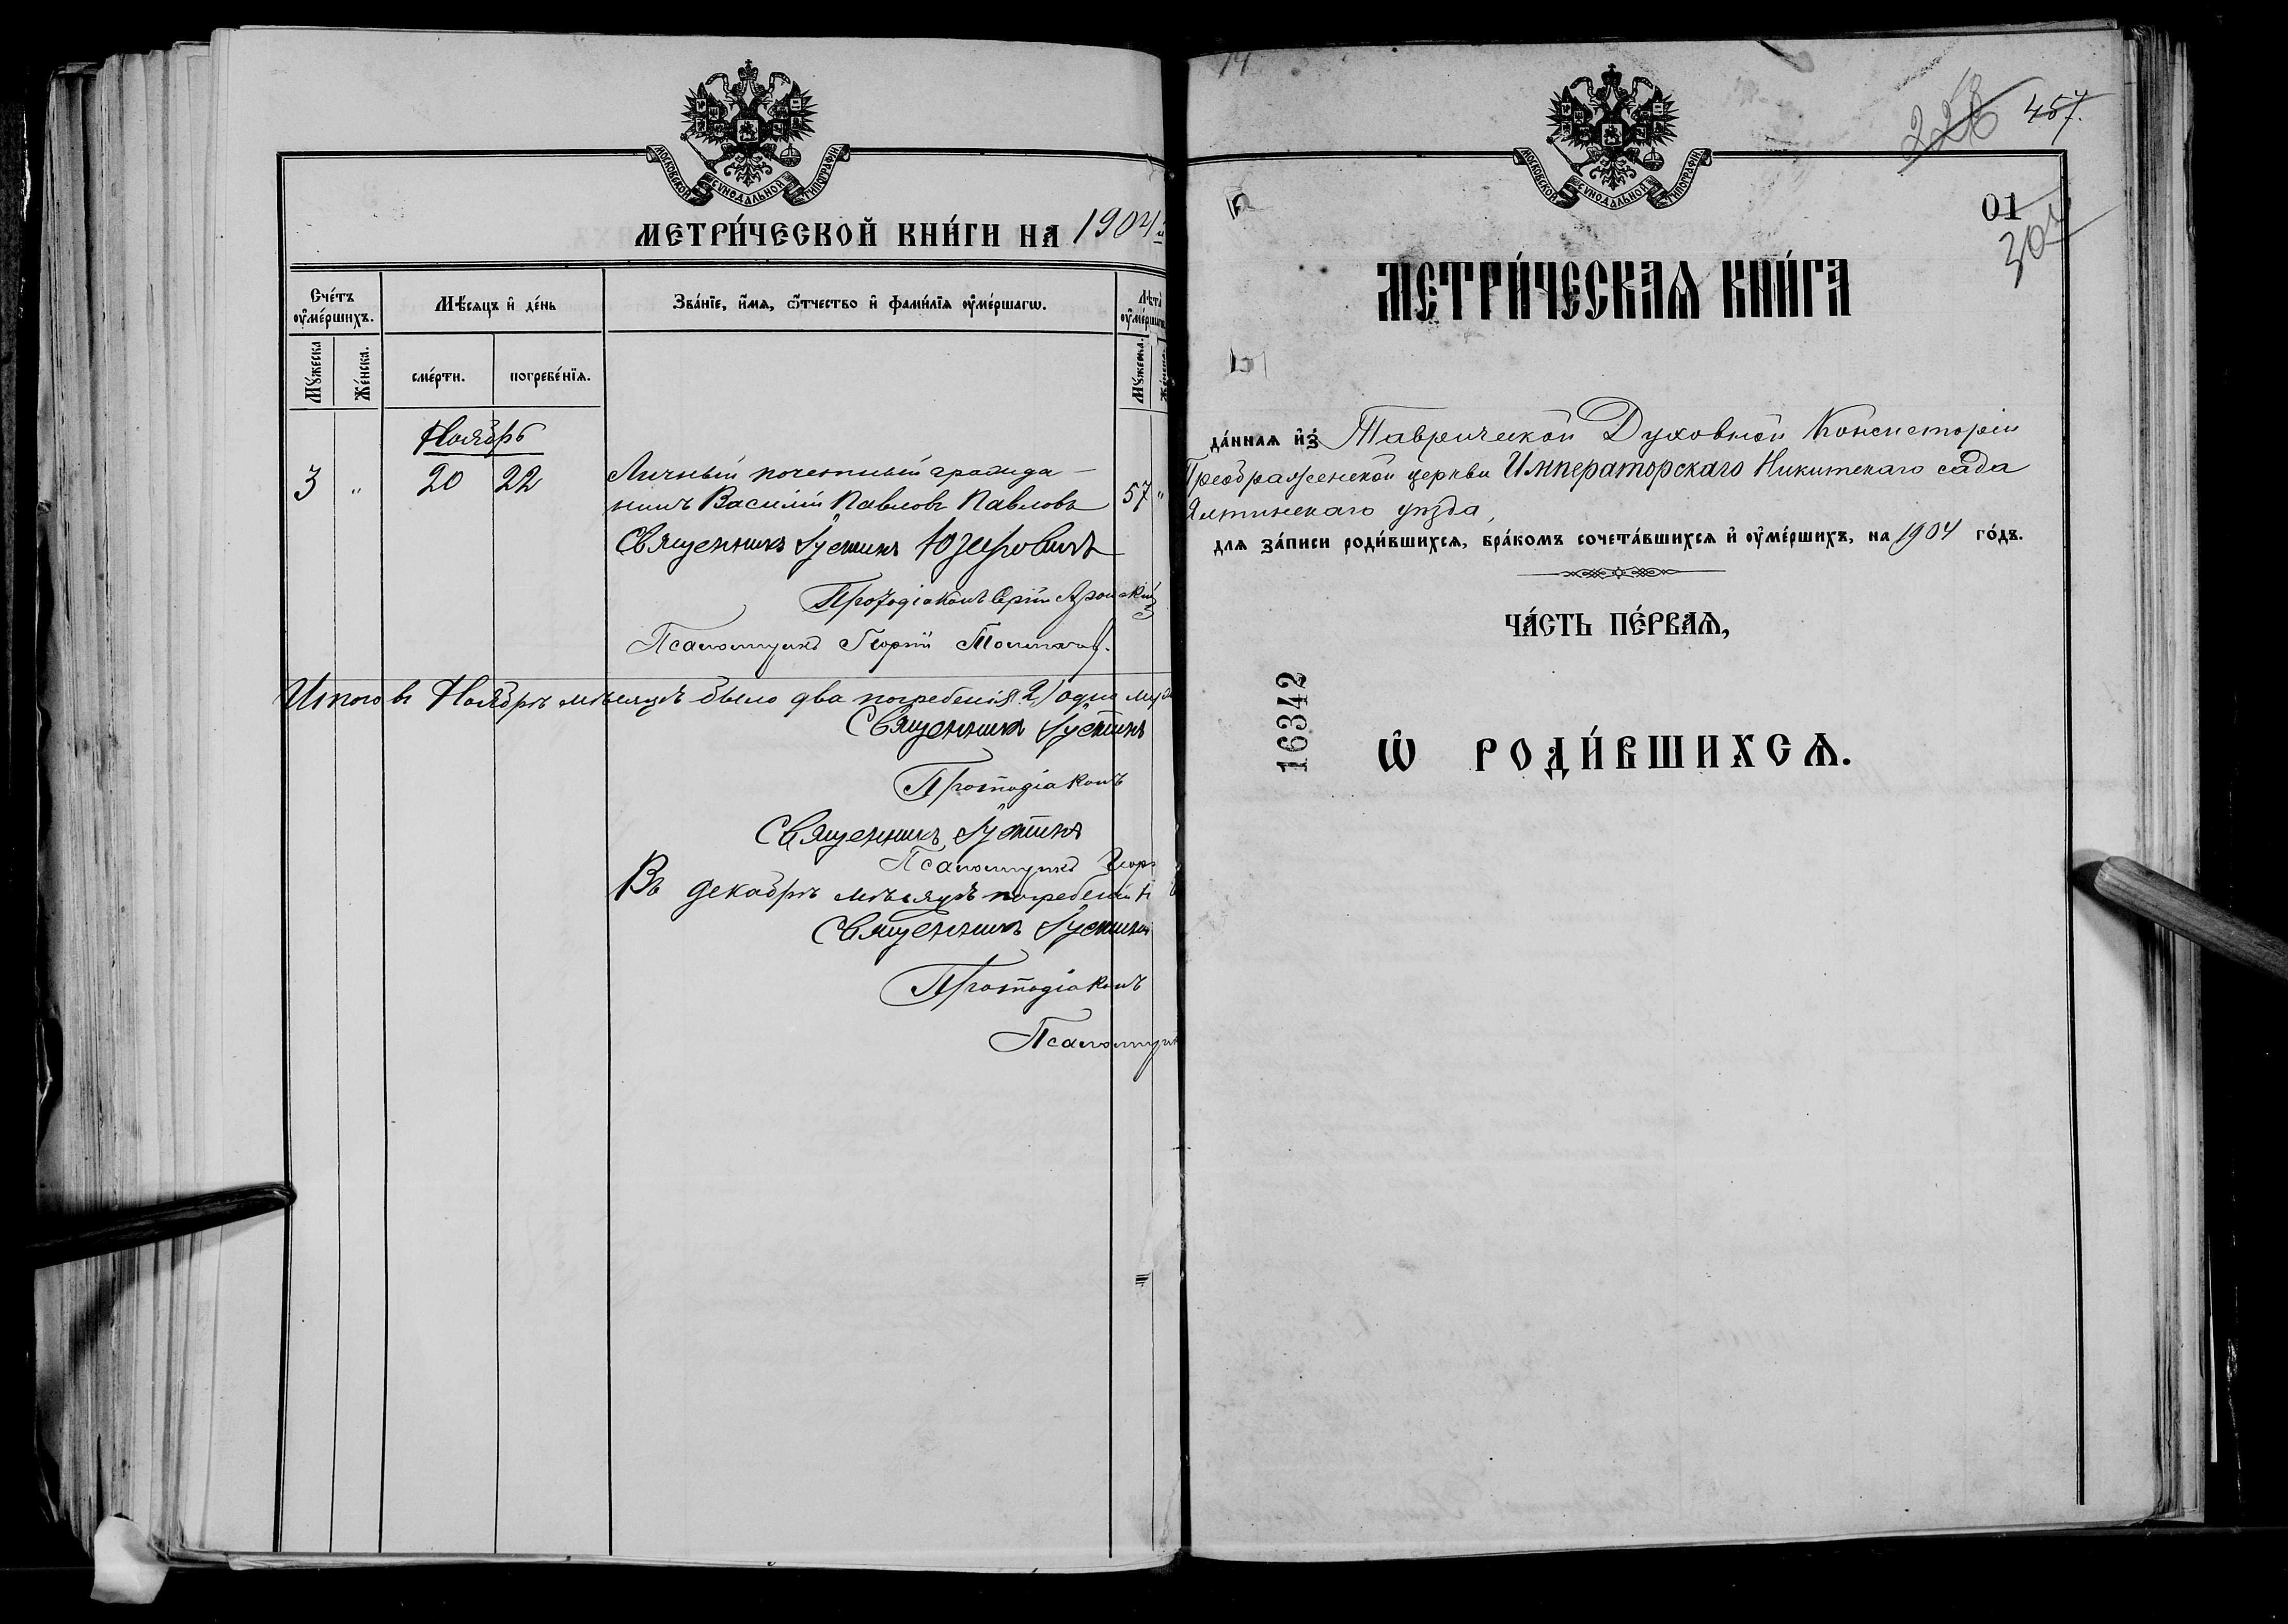 МОСКОВСКОЙ СѴНОДАЛЬНОЙ ТИПОГРАФІИ
МЕТРИ́ЧЕСКОЙ КНИ́ГИ НА 1904
Сче́тъ ᲂу҆ме́ршихъ.
Мѣ́сяцъ и҆ де́нь
Зва́нїе, и҆́мя, ѻ҆́тчество и҆ фами́лїя ᲂу҆ме́ршагѡ.
Лѣта ᲂу҆ме́ршагѡ
Мꙋ́жеска
Же́нска.
сме́рти.
погребе́нїя.
Мꙋ́жеска.
Ноябрь
3 " 20 22 Личный почетный гражда-
нинъ Василій Павловъ Павловъ 57 "
Священникъ Іустинъ Юзефовичъ
Протодіаконъ
Псаломщикъ Георгій
Итого въ Ноябрѣ мѣсяцѣ было два погребенія (2) одно муж
Священникъ Іустинъ
Протодіаконъ
Священникъ Іустинъ
Псаломщикъ Геор
Въ декабрѣ мѣсяцѣ погребеній н
Священникъ Іустинъ
Протодіаконъ
Псаломщик
14
228 457.
МОСКОВСКОЙ СѴНОДАЛЬНОЙ ТИПОГРАФІИ
01
304
МЕТРИ́ЧЕСКАѦ КНИ́ГА
да́нная и҆з̾ Таврической Духовной Консисторіи
Преображенской церкви Императорскаго Никитскаго сада
Ялтинскаго уѣзда,
для за́писи роди́вшихся, бра́комъ сочета́вшихся и҆ ᲂу҆ме́ршихъ, на 1904 го́дъ.
ЧА́СТЬ ПЕ́РВАѦ,
16342
Ѡ҆ РОДИ́ВШИХСѦ.